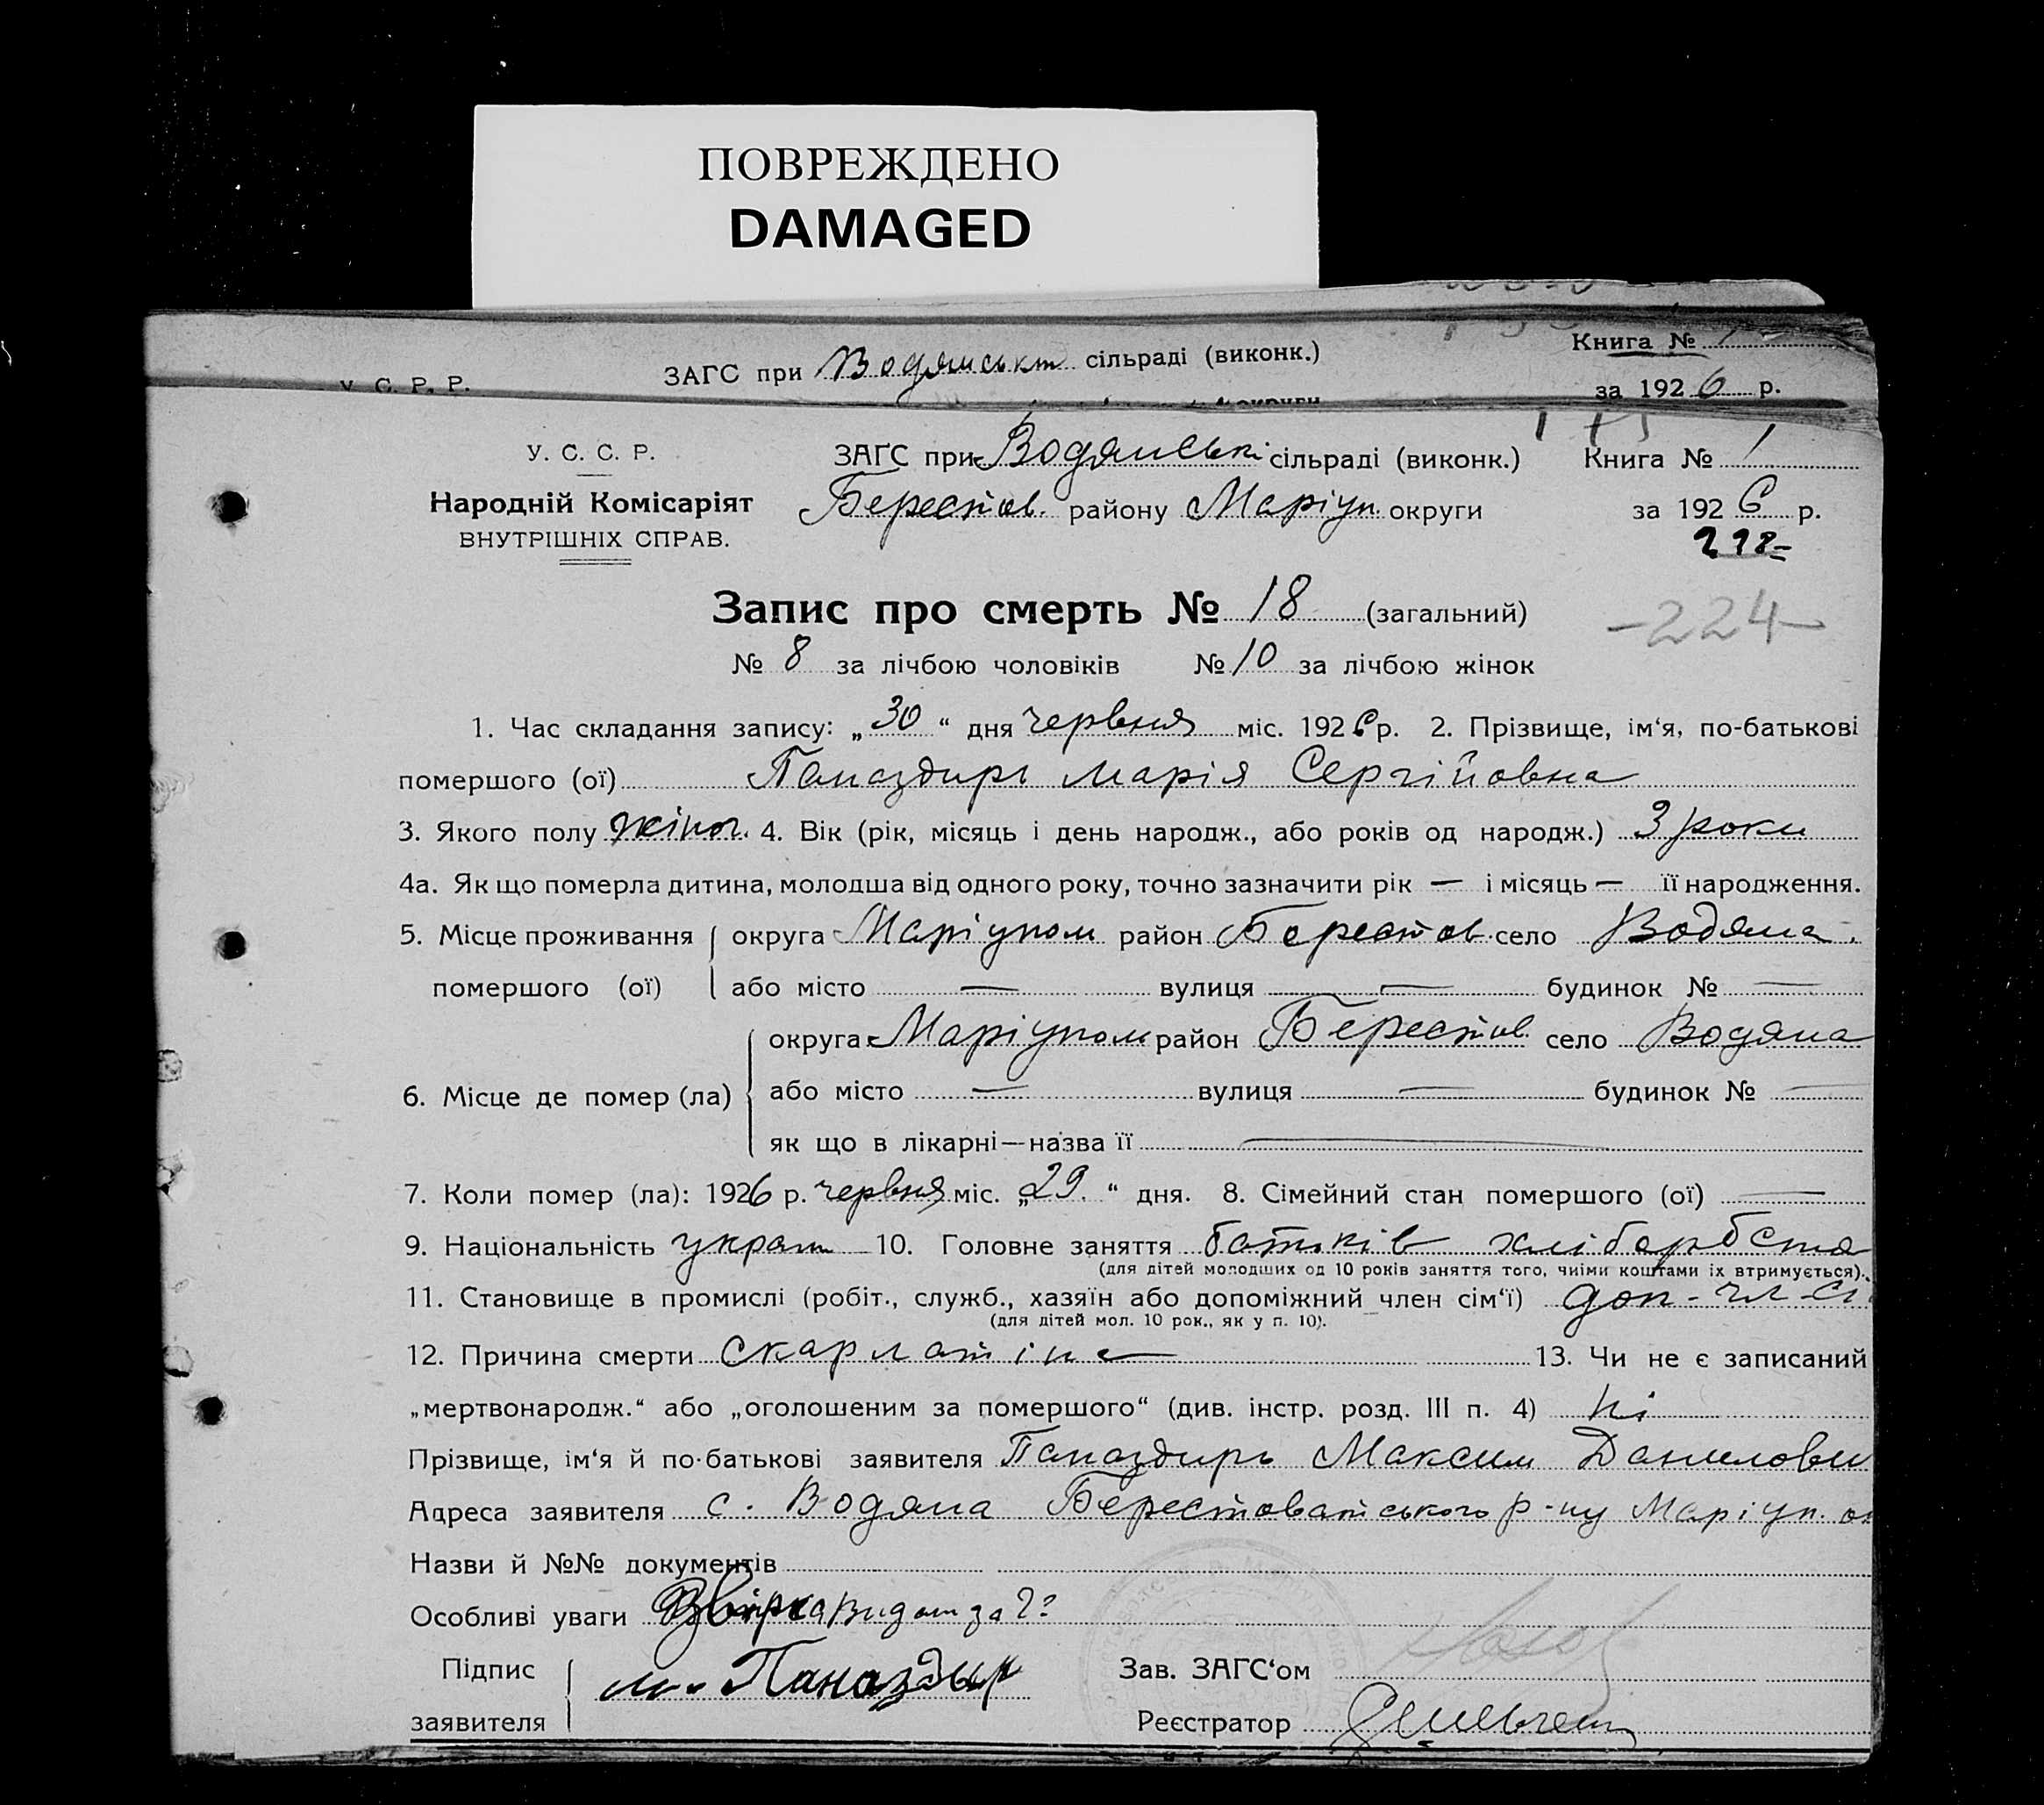 ПОВРЕЖДЕНО
DAMAGED
У. С. Р. Р. ЗАГС при Водянськ сільраді (виконк.) Книга № 1
за 1926 р.
У. С. С. Р. ЗАГС при Водянські сільраді (виконк.) Книга № 1
Народній Комісаріят Берестов. району Маріуп. округи за 1926 р.
ВНУТРІШНІХ СПРАВ.
Запис про смерть № 18 (загальний) -224-
№ 8 за лічбою чоловіків № 10 за лічбою жінок
1. Час складання запису: „30“ дня червня міс. 1926 р. 2. Прізвище, ім‘я, по-батькові
помершого (ої) Паназдирь Марія Сергійовна
3. Якого полу жіноч. 4. Вік (рік, місяць і день народж., або років од народж.) 3 роки
4а. Як що померла дитина, молодша від одного року, точно зазначити рік — і місяць — її народження.
5. Місце проживання округа Маріупол район Берестов. село Водяна.
помершого (ої) або місто — вулиця — будинок № —
округа Маріупол район Берестов село Водяна
6. Місце де помер (ла) або місто — вулиця — будинок № —
як що в лікарні—назва її —
7. Коли помер (ла): 1926 р. червня міс. „29.“ дня. 8. Сімейний стан помершого (ої) —
9. Національність украт 10. Головне заняття батьків хліборобств
(для дітей молодших од 10 років заняття того, чиїми коштами їх втримується).
11. Становище в промислі (робіт., служб., хазяїн або допоміжний член сім‘ї) доп-чл-сі
(для дітей мол. 10 рок., як у п. 10).
12. Причина смерти скарлатіна 13. Чи не є записаний
„мертвонародж.“ або „оголошеним за помершого“ (див. інстр. розд. III п. 4) ні
Прізвище, ім‘я й по-батькові заявителя Паназдирь Максим Данилови
Адреса заявителя с. Водяна Берестоватського р-ну Маріуп. ок
Назви й №№ документів
Особливі уваги видат за
Підпис м. Паназдыр Зав. ЗАГС‘ом
заявителя Реєстратор